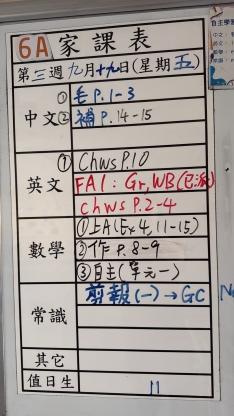 6A 家課表
第三週九月十九日(星期五)
中文 ① 毛 P.1-3
② 補 P.14-15
英文 ① Chws P.10
FA1: Gr, WB (已派)
Chws P.2-4
數學 ① 上A(Ex 4, 11-15)
② 作 P.8-9
③ 自主(單元一)
常識 剪報(一)→GC
其它
值日生 11
自主學習